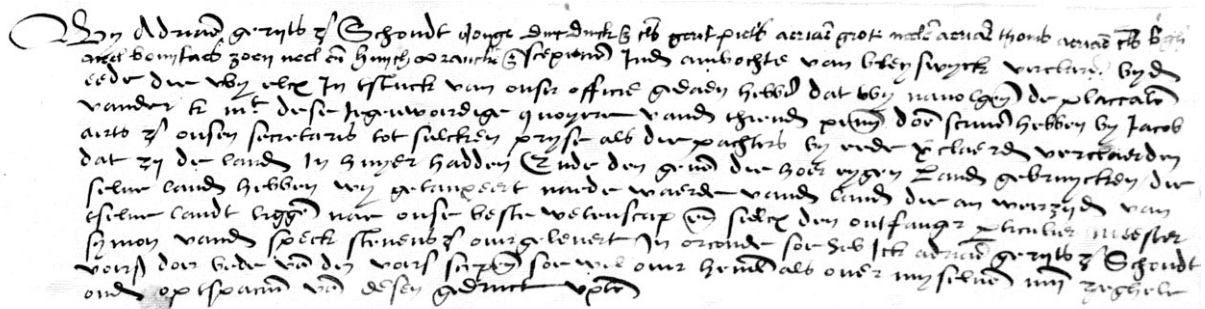 Wy Adriaen gerijts zn Schoudt Jonge Dirck Dircks zn gerit piets adriaen grote adriaen thonis adriaen
zoen neel en hinrick scepenen Inden ambochte van bleyswyck verclaren byden
eede die wy elcx In tstuck van onser officie gedaen hebben dat wy navolgen de placcaten
vander k mt dese Jegewoordige quoyere vanden thienden penninc doen scriven hebben by Jacob
airts zn onsen secretaris tot sulcken pryse als die pachters by eede verclaerden
dat zy de landen In huyer hadden Ende den genen die hoer eygen landen gebruycken die
selve landen hebben wy getaxeert naede waerde vanden landen die an weerzyden van
tselve landt liggen nae onse beste wetenscap en sulcx den ontfanger particulier meester
symon vander speck stevens zn overgelevert In orconde soe heb Ick adriaen gerijts zn Schoudt
voirs door bede van den voirs scepen soe wel over hemlen als over my selven myn zeghele
onder op tspacium van desen gedruct